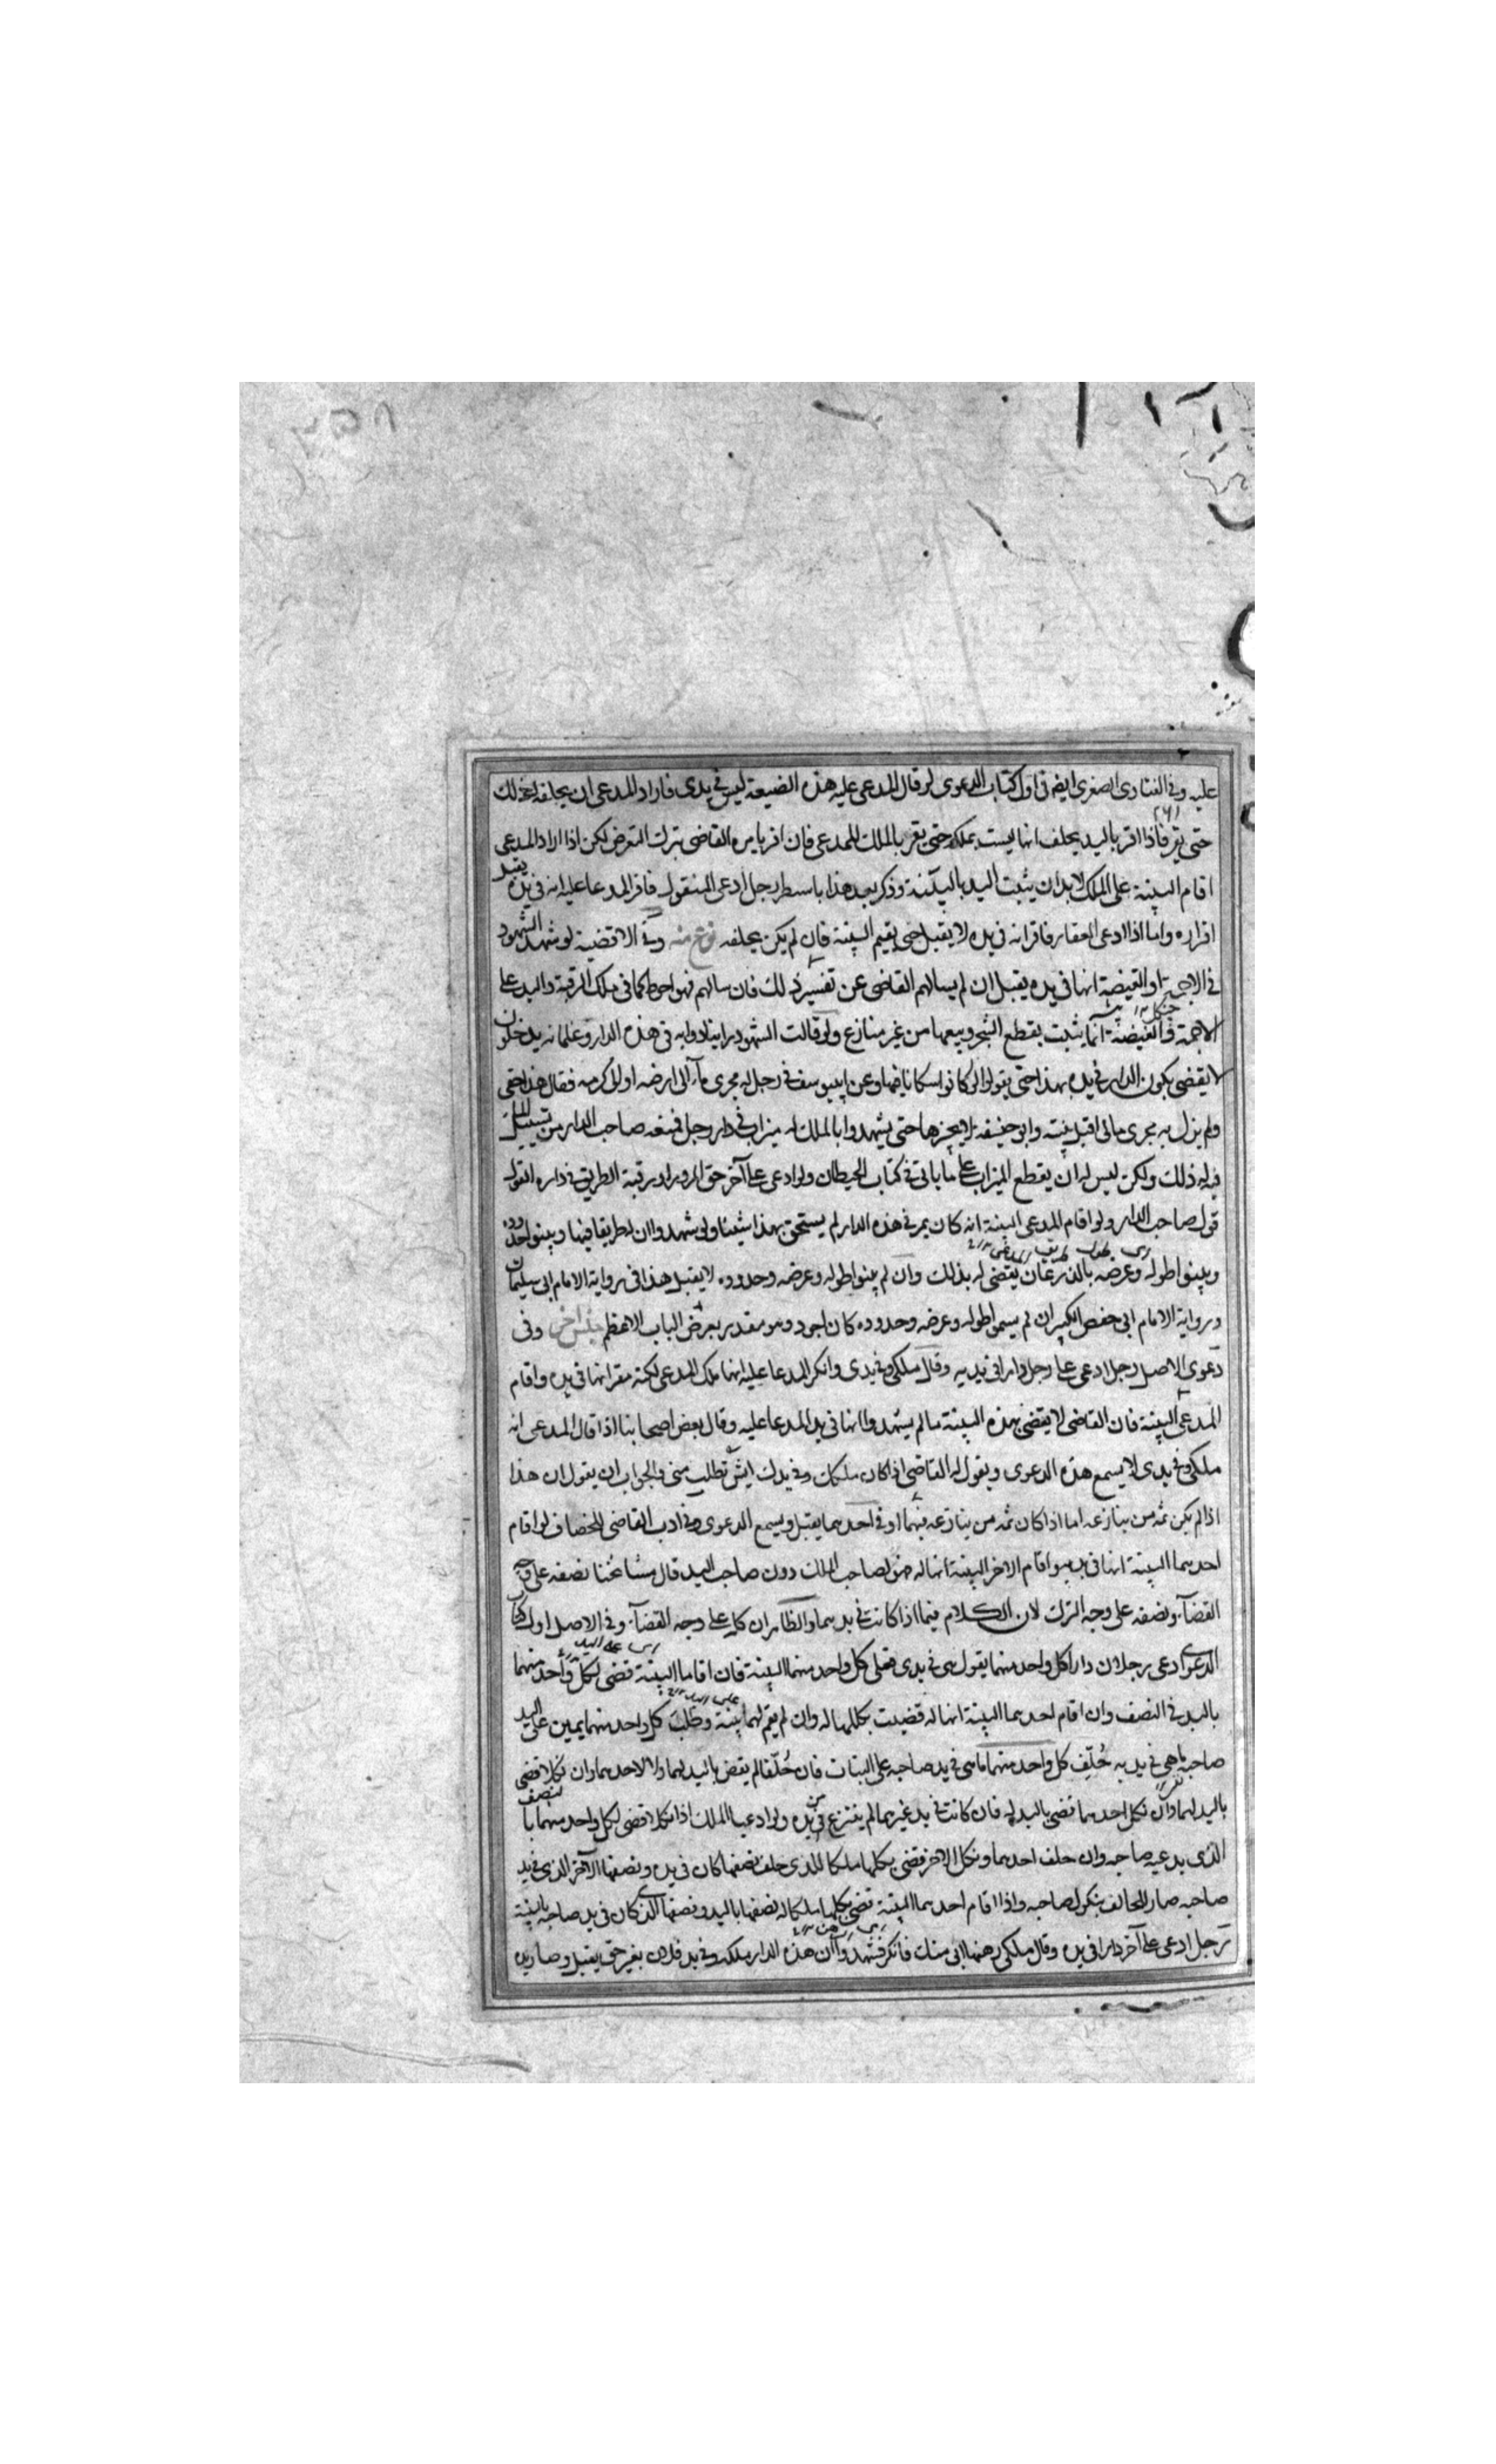 عليه وفى الفتاوى الصغرى ايضم فى اول كتاب الدعوى لو قال المدعى عليه هذه الضيعة ليس فى يدى فاراد المدعى ان يحلفه فله ذلك
حتى يقر فاذا اقر باليد يحلف انها ليست بملكه حتى يقر بالملك للمدعى فان اقر يامره القاضى بترك التعرض لكن اذا اراد المدعى
اقام البينة على الملك لا بد ان يثبت اليد بالبينة وذكر بعد هذا باسطر رجل ادعى المنقول فاقر المدعا عليه انه فى يده يقبل
اقراره واما اذا ادعى العقار فاقر انه فى يده لا يقبل حتى يقيم البينة فان لم يكن يحلفه نوع منه وفى الاقضية لو شهد الشهود
فى الاجمة او الغيضة انها فى يده يقبل ان لم يسالهم القاضى عن تفسير ذلك فان سالهم فهو احوط كما فى ملك الرقبة واليد على
الاجمة والغيضة انما يثبت بقطع الشجر وبيعها من غير منازع ولو قالت الشهود راينا دوابه فى هذه الدار وغلمانه يدخلون
لا يقضى بكون الدار فى يده بهذا حتى يقولوا كانوا سكانا فيها وعن ابيوسف فى رجل له مجرى ماء الى ارضه او الى كرمه فقال هذا حقى
ولم يزل به مجرى مائى اقبل بينته وابو حنيفة لم يجزها حتى يشهدوا بالملك له ميزاب فى دار رجل فمنعه صاحب الدار من تسييل الماء
فيه له ذلك ولكن ليس له ان يقطع الميزاب على ما ياتى فى كتاب الحيطان ولو ادعى على آخر حق المرور او رقبة الطريق فى داره القول
قول صاحب الدار ولو اقام المدعى البينة انه كان يمر فى هذه الدار لم يستحق بهذا شيئا ولو شهدوا ان له طريقا فيها وبينوا حدوده
وبينوا طوله وعرضه بالذرعان يقضى له بذلك وان لم يبينوا طوله وعرضه وحدوده لا يقبل هذا فى رواية الامام ابى سليمان
ورواية الامام ابى حفص الكبير ان لم يسموا طوله وعرضه وحدوده كان اجود وهو مقدر بعرض الباب الاعظم جنس آخر وفى
دعوى الاصل رجل ادعى على رجل دارا فى يديه وقال ملكى وفى يدى وانكر المدعا عليه انها ملك المدعى لكنه مقر انها فى يده واقام
المدعى البينة فان القاضى لا يقضى بهذه البينة ما لم يشهدوا انها فى يد المدعا عليه وقال بعض اصحابنا اذا قال المدعى انه
ملكى وفى يدى لا يسمع هذه الدعوى ويقول له القاضى اذا كان ملكك وفى يدك ايش تطلب منى والجواب ان يقول ان هذا
اذا لم يكن ثمه من ينازعه اما اذا كان ثمه من ينازعه فيهما او فى احدهما يقبل ويسمع الدعوى وفى ادب القاضى للخصاف لو اقام
احدهما البينة انها فى يده واقام الاخر البينة انها له فهى لصاحب الملك دون صاحب اليد قال مشائخنا نصفه على وجه
القضاء ونصفه على وجه الترك لان الكلام فيما اذا كانت فى يدهما والظاهر ان كله على وجه القضاء وفى الاصل اول كتاب
الدعوى ادعى رجلان دارا كل واحد منهما يقول هى فى يدى فعلى كل واحد منهما البينة فان اقاما البينة قضى لكل واحد منهما
باليد فى النصف وان اقام احدهما البينة انها له قضيت بكلها له وان لم يقم لهما بينة وطلب كل واحد منهما يمين على اليد
صاحبه ما هى فى يديه حُلّف كل واحد منهما ما هى فى يد صاحبه على البتات فان حُلّفا لم يقض باليد لهما ولا لاحدهما وان نكلا قضى
باليد لهما وان نكل احدهما قضى باليد له فان كانت فى يد غيرهما لم ينتزع من يده ولو ادعيا الملك اذا نكلا قضى لكل واحد منهما بالنصف
الذى يدعيه صاحبه وان حلف احدهما ونكل الاخر قضى بكلها ملكا للذى حلف نصفها كان فى يده ونصفها الآخر الذى فى يد
صاحبه صار للحالف بنكول صاحبه واذا اقام احدهما البينة قضى بكلها ملكا له نصفها باليد ونصفها الذى كان فى يد صاحبه بالبينة
رجل ادعى على آخر دارا فى يده وقال ملكى رهنها ابى منك فانكر فشهدوا ان هذه الدار ملكه وفى يد فلان بغير حق يقبل وصار يد